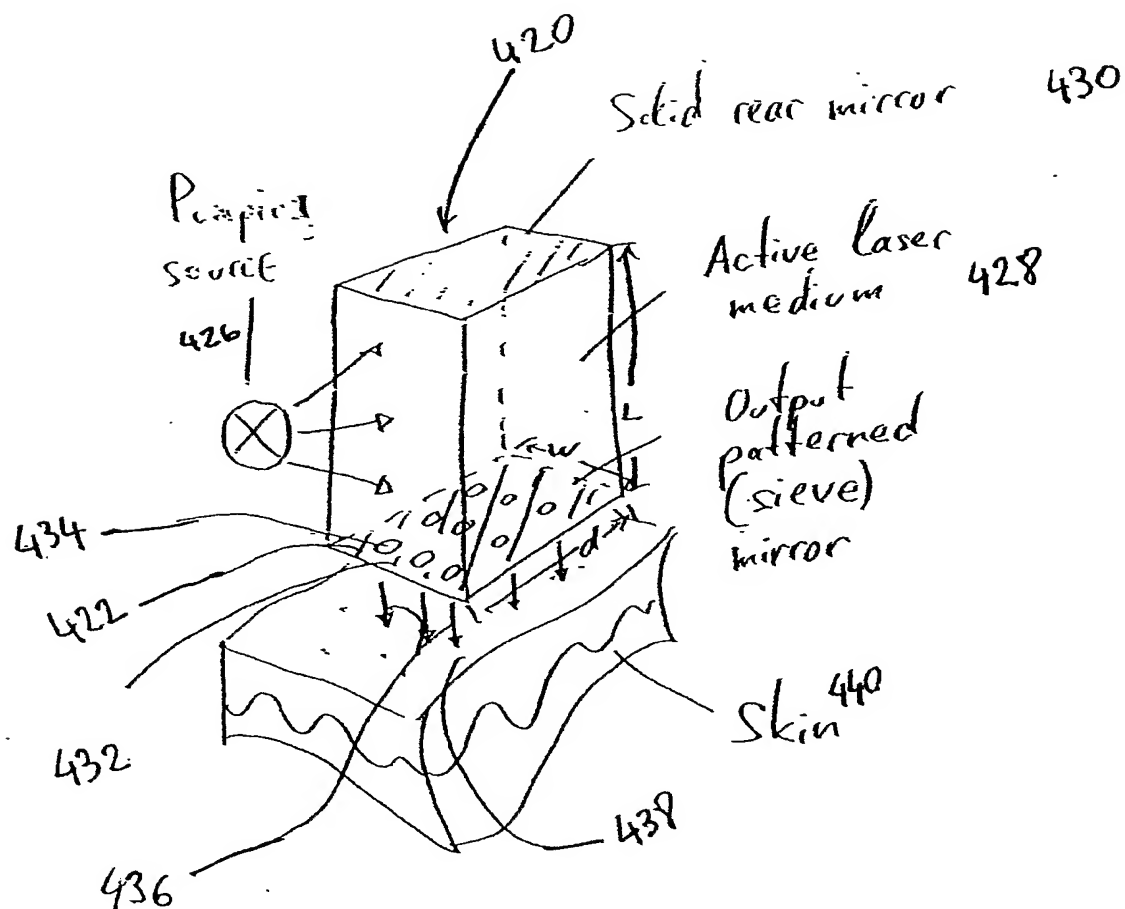 420
Solid rear mirror 430
Pumping
source
426
Active laser
medium 428
L
w
Output
patterned
(sieve)
mirror
d
434
422
432
Skin 440
438
436